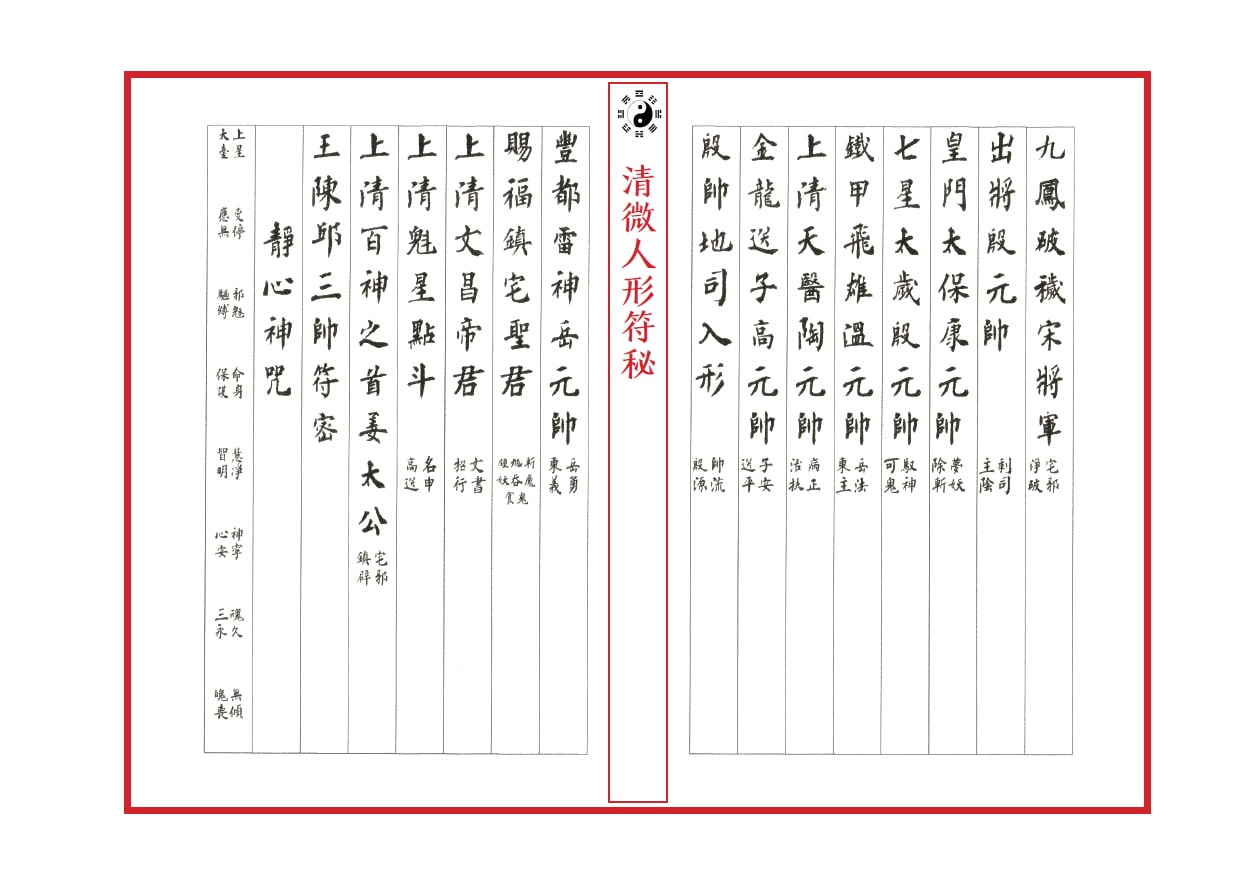 九鳳破穢宋將軍 淨宅破邪
出將殷元帥 主刹陰司
皇門太保康元帥 除夢斬妖
七星太歲殷元帥 可馭鬼神
鐵甲飛雄溫元帥 東岳主法
上清天醫陶元帥 治病扶正
金龍送子高元帥 送子平安
殷帥地司入形 殷帥源流
清微人形符秘
豐都雷神岳元帥 東岳義勇
賜福鎮宅聖君 鍾馗斬妖吞魔食鬼
上清文昌帝君 招文行書
上清魁星點斗 高名送申
上清百神之首姜太公 鎮宅辟邪
王陳邱三帥符密
靜心神咒
太上臺星 應变無停 驅邪縛魅 保命護身 智慧明淨 心神安寧 三魂永久 魄無喪傾